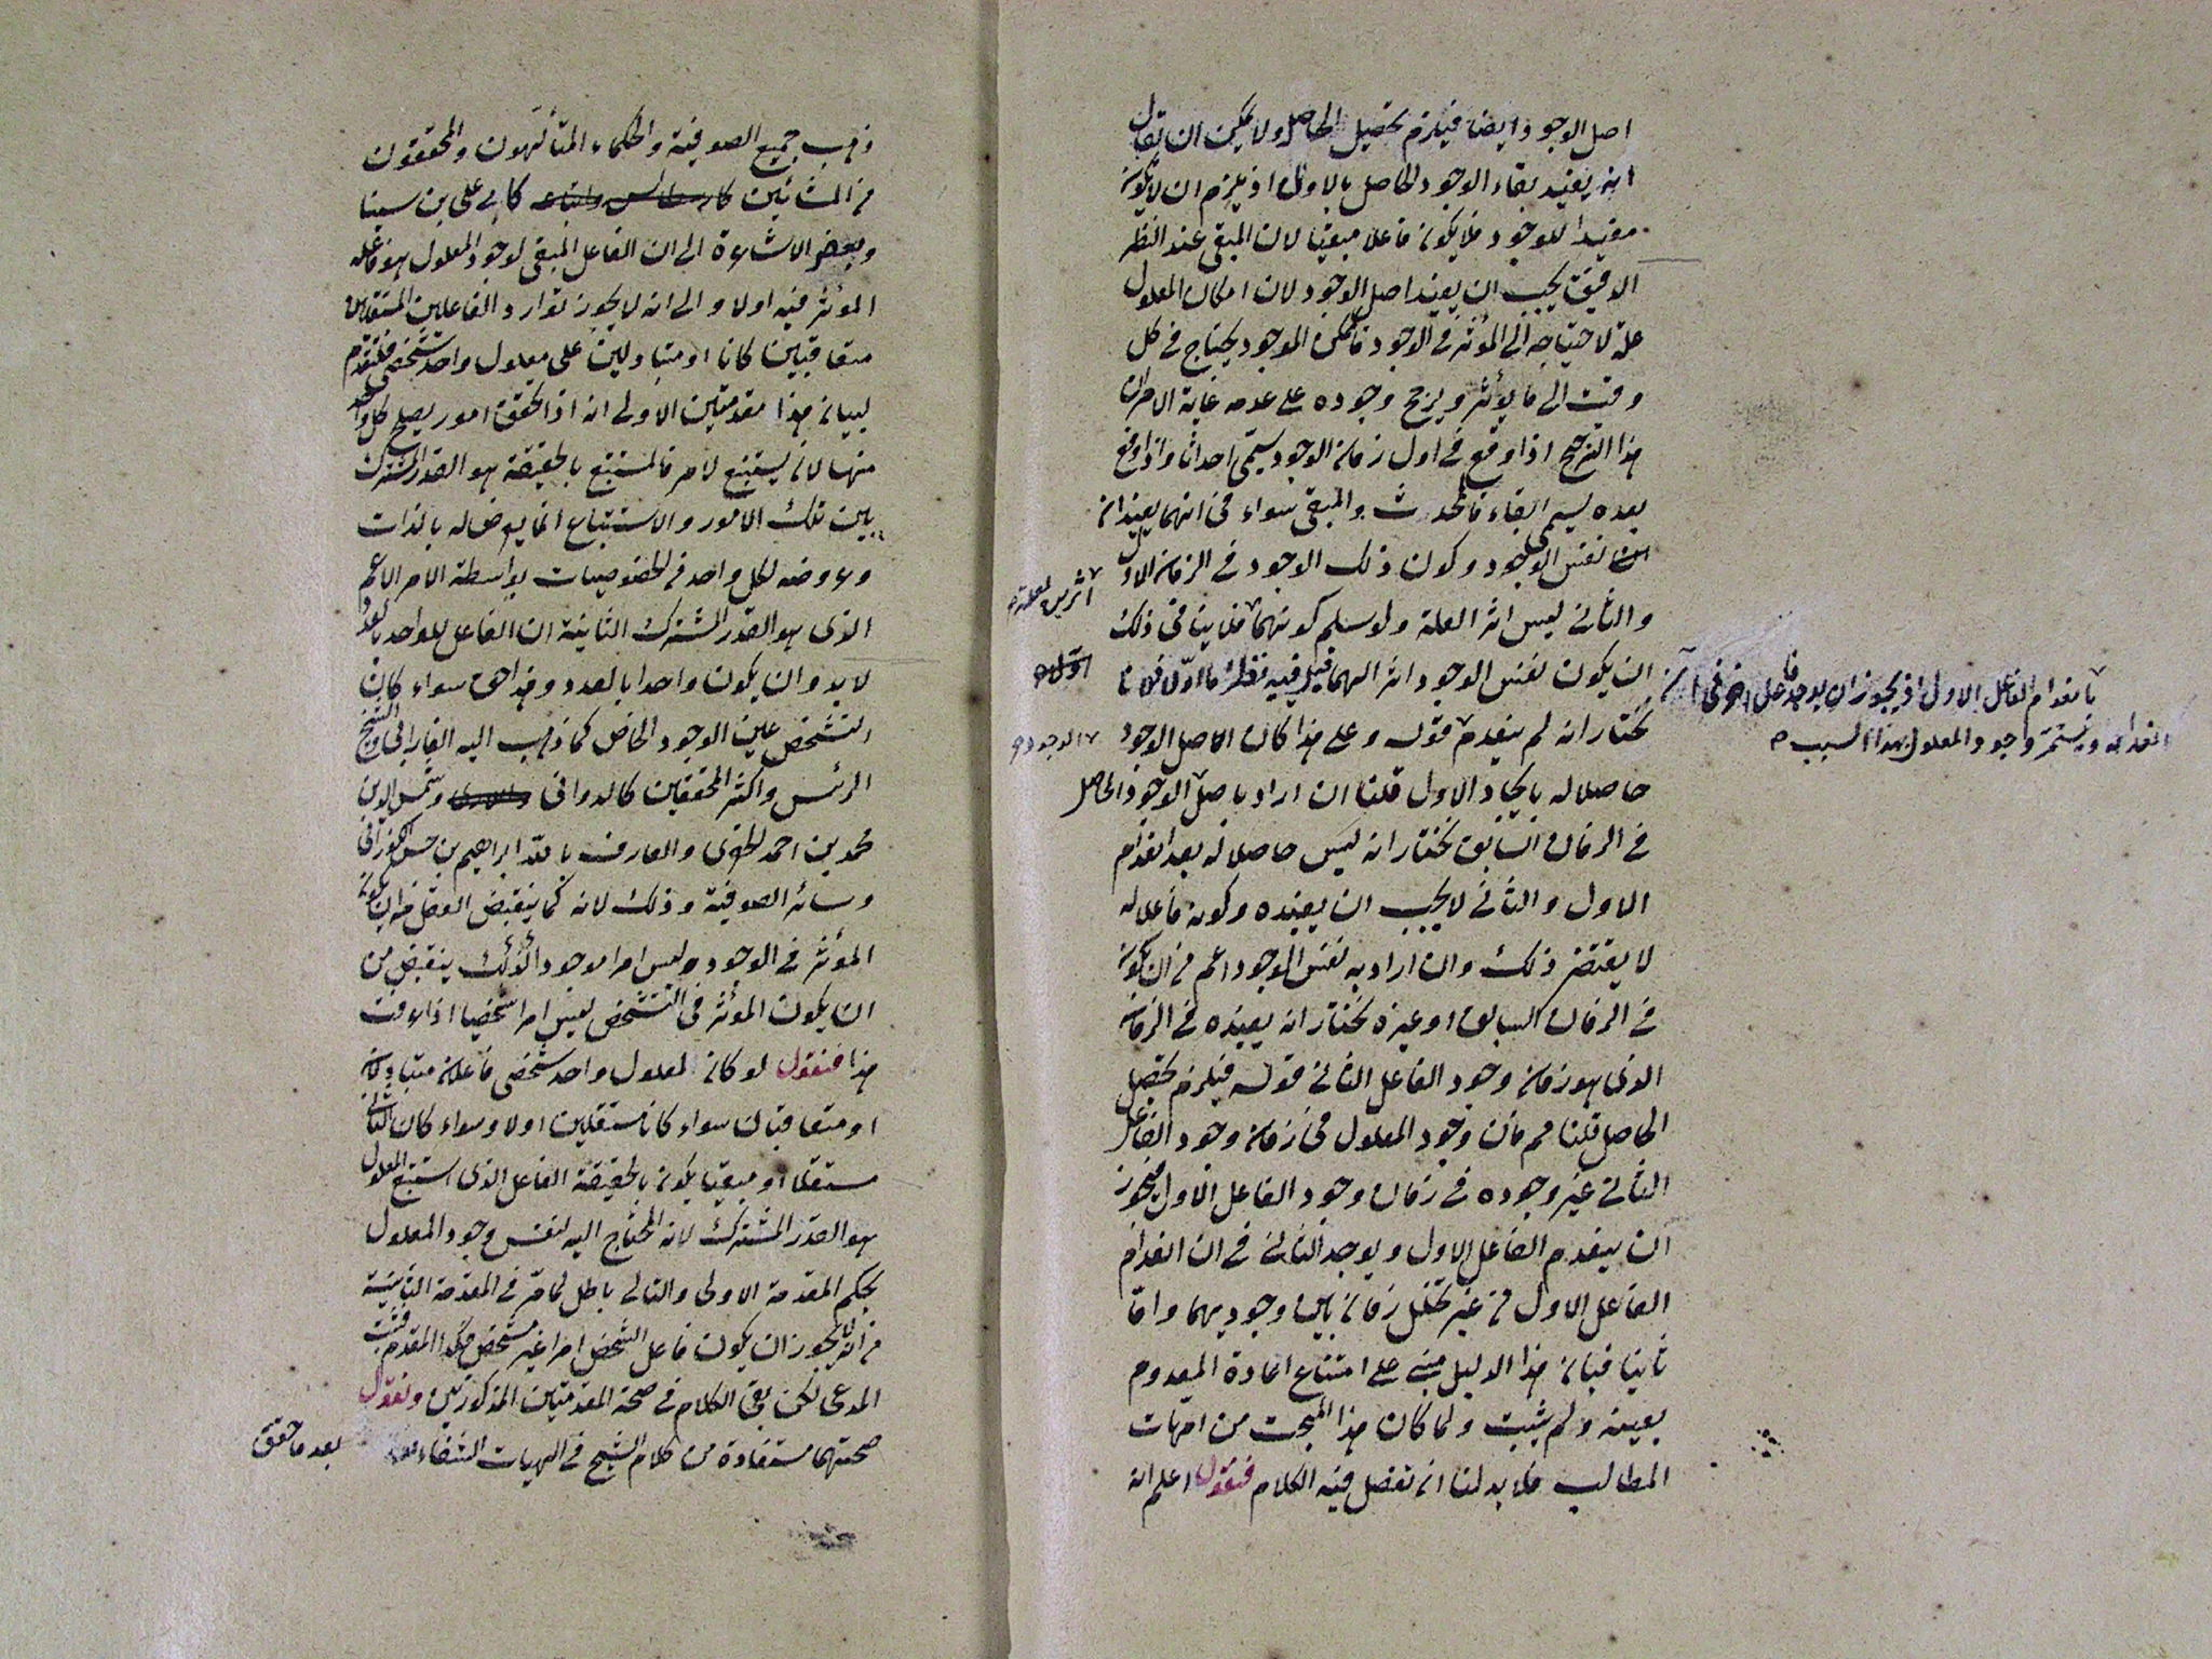 اصل الوجود ايضا فيلزم تحصيل الحاصل ولا يمكن ان يقال
انه يفيد بقاء الوجود الحاصل بالاول اذ يلزم ان لا يكون
مفيدا للوجود فلا يكون فاعلا مبقيا لان المبقى عند النظر
الدقيق يجب ان يفيد اصل الوجود لان امكان المعلول
علة لاحتياجه الى المؤثر فى الوجود فالممكن الموجود يحتاج فى كل
وقت الى ما يؤثر ويرجح وجوده على عدمه غاية الامر ان
هذا الترجيح اذا وقع فى اول زمان الوجود يسمى احداثا واذا وقع
بعده يسمى ابقاء فالمحدث والمبقى سواء فى انهما يفيدان
نفس الوجود وكون ذلك الوجود فى الزمان الاول
والثانى ليس اثر العلة ولو سلم كونهما فلا ينافى ذلك
اثرين للعلة
ان يكون نفس الوجود اثرا لهما قيل فيه نظر اما اولا فلانا
نختار انه لم ينعدم قوله وعلى هذا كان اصل الوجود
الوجود
بانعدام الفاعل الاول اذ يجوز ان يوجد فاعل اخر فى آن
انعدامه ويستمر وجود المعلول بهذا السبب
حاصلا له بايجاد الاول قلنا ان اراد باصل الوجود الحاصل
فى الزمان السابق نختار انه ليس حاصلا له بعد انعدام
الاول والثانى لا يجب ان يفيده وكونه فاعلا له
لا يقتضى ذلك وان اراد به نفس الوجود اعم من ان يكون
فى الزمان السابق او غيره نختار انه يفيده فى الزمان
الذى هو زمان وجود الفاعل الثانى قوله فيلزم تحصيل
الحاصل قلنا مم فان وجود المعلول فى زمان وجود الفاعل
الثانى غير وجوده فى زمان وجود الفاعل الاول فيجوز
ان ينعدم الفاعل الاول ويوجد الثانى فى ان انعدام
الفاعل الاول من غير تخلل زمان بين وجوديهما واما
ثانيا فبان هذا الدليل مبنى على امتناع اعادة المعدوم
بعينه ولم يثبت ولما كان هذا المبحث من امهات
المطالب فلا بد لنا ان نفصل فيه الكلام فنقول اعلم انه
ذهب جميع الصوفية والحكماء المتألهون والمحققون
من المشائين كابى على بن سينا
وبعض الاشاعرة الى ان الفاعل المبقى لوجود المعلول هو فاعله
المؤثر فيه اولا والى انه لا يجوز توارد الفاعلين المستقلين
متعاقبين كانا او متبادلين على معلول واحد شخصى فلنقدم
لبيان هذا مقدمتين الاولى انه اذا تحقق امور يصلح كل واحد
منها لان يستتبع لامر فالمستتبع بالحقيقة هو القدر المشترك
بين تلك الامور والاستتباع انما يعرض له بالذات
وعروضه لكل واحد من الخصوصيات بواسطة الامر الاعم
الذى هو القدر المشترك الثانية ان الفاعل للواحد بالعدد
لا بد وان يكون واحدا بالعدد وهذا هو سواء كان
التشخص عين الوجود الخاص كما ذهب اليه الفارابى والشيخ
الرئيس واكثر المحققين كالدوانى وشمس الدين
محمد بن احمد الخفرى والعارف بالله ابراهيم بن حسن الكورانى
وسائر الصوفية وذلك لانه كما ينقبض العقل من ان يكون
المؤثر فى الوجود وليس امرا موجودا كذلك ينقبض من
ان يكون المؤثر فى التشخص ليس امرا شخصيا اذا عرفت
هذا فنقول لو كان لمعلول واحد شخصى فاعلان متبادلان
او متعاقبان سواء كانا مستقلين اولا وسواء كان الثانى
مستقلا او مبقيا يكون بالحقيقة الفاعل الذى استتبع المعلول
هو القدر المشترك لانه المحتاج اليه لنفس وجود المعلول
بحكم المقدمة الاولى والتالى باطل لما مر فى المقدمة الثانية
من انه لا يجوز ان يكون فاعل الشخص امرا غير مشخص فكذا المقدم فثبت
المدعى لكن بقى الكلام فى صحة المقدمتين المذكورتين ونقول
صحتهما مستفادة من كلام الشيخ فى الهيات الشفاء
بعد ما حقق